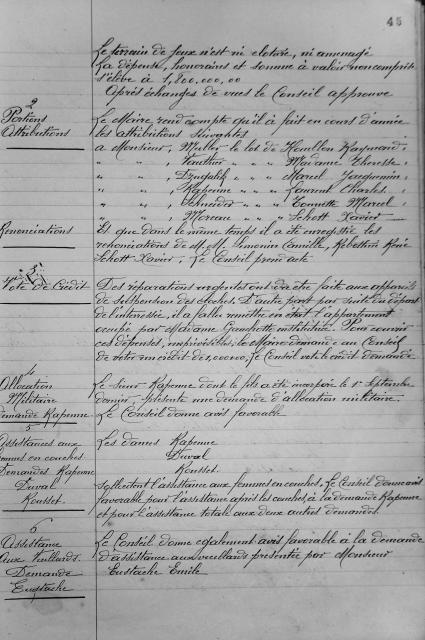 45
Le terrain de jeux n'est ni cloturé, ni aménagé
La dépense, honoraires et somme à valoir non compris
s'élève à 1,800,000,00
Après échanges de vues le Conseil approuve
2
Portions
Attributions
Le Maire rend compte qu'il a fait en cours d'année
les attributions suivantes
a Monsieur, Muller le lot de Houllon Raymond
" " " Vauthier " " " Madame
" " " " " " Marcel Jacquemin
" " " Kapenne " " " Laurent Charles
" " " Schneider " " " Tonnette Marcel
" " " Moreau " " " Schott Xavier
Renonciations
Et que dans le même temps il a été enregistré les
renonciations de M.M. Simonin Camille, René
Schott Xavier, Le Conseil prend acte
3
Vote de Crédit
Des réparations urgentes ont dû être faite aux appareils
de suspension des cloches. D'autre part par suite du départ
de l'intéressée, il a fallu remettre en état l'appartement
occupé par Madame institutrice. Pour couvrir
ces dépenses, imprévisibles, le Maire demande au Conseil
de voter un crédit de Le Conseil vote le crédit demandé
4
Allocation
Militaire
Demande Kapenne
Le Sieur Kapenne dont le fils a été incorporé le 1er Septembre
dernier, présente une demande d'allocation militaire.
Le Conseil donne avis favorable
5
Assistances aux
femmes en couches
Demandes Kapenne
Duval
Rousset
Les dames Kapenne
Duval
Rousset
sollicitent l'assistance aux femmes en couches. Le Conseil donne avis
favorable pour l'assistance après les couches, à la demande Kapenne
et pour l'assistance totale aux deux autres demandes.
6
Assistance
aux Vieillards
Demande
Eustache
Le Conseil donne également avis favorable à la demande
d'assistance aux vieillards présentée par Monsieur
Eustache Emile